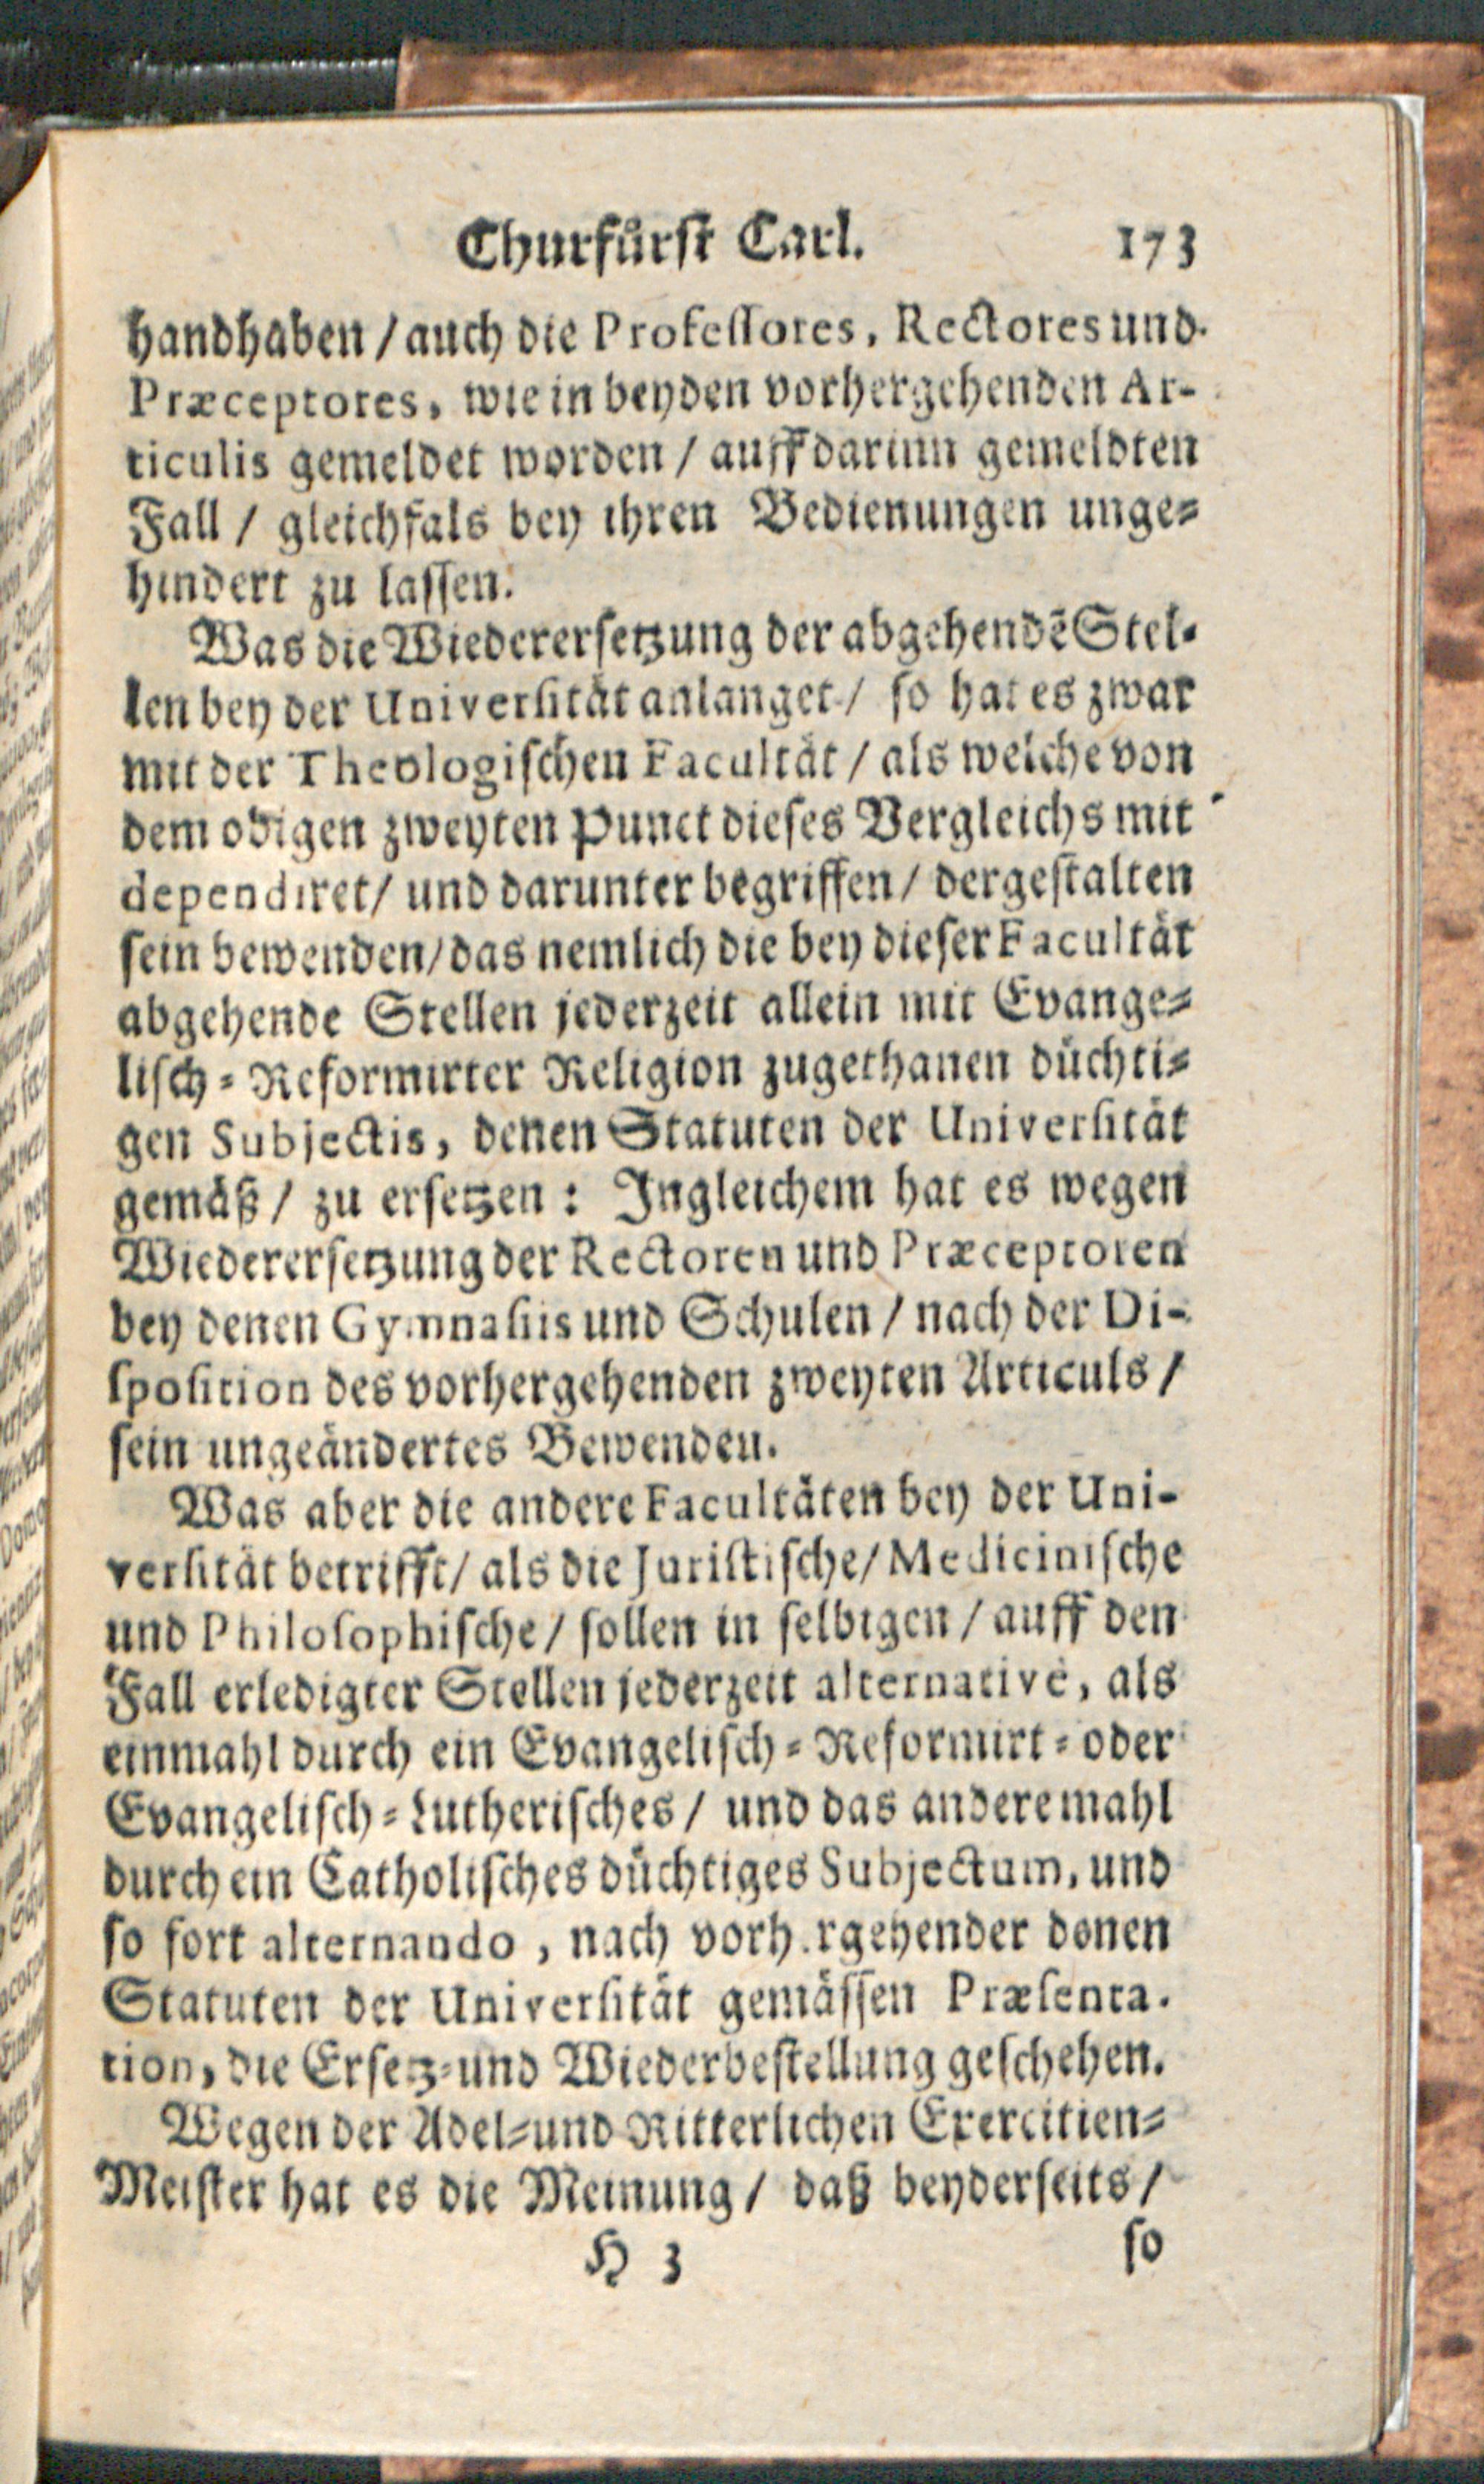 Churfürst Carl. 173
handhaben / auch die Professores, Rectores und
Præceptores, wie in beyden vorhergehenden Ar-
ticulis gemeldet worden / auff darinn gemeldten
Fall / gleichfals bey ihren Bedienungen unge-
hindert zu lassen.
Was die Wiederersetzung der abgehendē Stel-
len bey der Universität anlanget / so hat es zwar
mit der Theologischen Facultät / als welche von
dem obigen zweyten Punct dieses Vergleichs mit
dependiret / und darunter begriffen / dergestalten
sein bewenden / das nemlich die bey dieser Facultät
abgehende Stellen jederzeit allein mit Evange-
lisch-Reformirter Religion zugethanen düchti-
gen Subjectis, denen Statuten der Universität
gemäß / zu ersetzen: Ingleichem hat es wegen
Wiederersetzung der Rectoren und Præceptoren
bey denen Gymnasiis und Schulen / nach der Di-
sposition des vorhergehenden zweyten Articuls /
sein ungeändertes Bewenden.
Was aber die andere Facultäten bey der Uni-
versität betrifft / als die Juristische / Medicinische
und Philosophische / sollen in selbigen / auff den
Fall erledigter Stellen jederzeit alternativè, als
einmahl durch ein Evangelisch-Reformirt-oder
Evangelisch-Lutherisches / und das andere mahl
durch ein Catholisches düchtiges Subjectum, und
so fort alternando, nach vorh.rgehender denen
Statuten der Universität gemässen Præsenta-
tion, die Ersetz-und Wiederbestellung geschehen.
Wegen der Adel-und Ritterlichen Exercitien-
Meister hat es die Meinung / daß beyderseits /
H 3 so